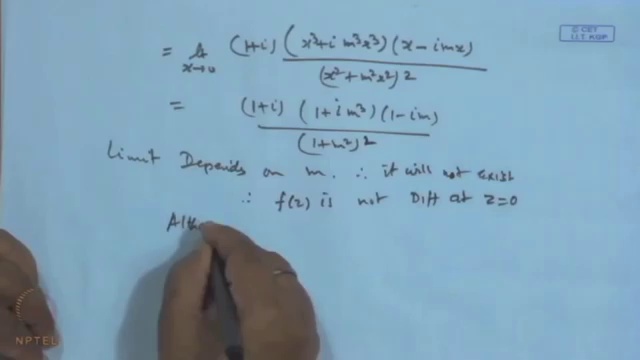 © CET
I.I.T. KGP
= lt x→0 (1+i) (x³+i m³x³) (x-imx) / (x²+m²x²)2
= (1+i) (1+i m³) (1-im) / (1+m²)2
Limit Depends on m. ∴ it will not exist
∴ f(z) is not Diff at z=0
Alth
NPTEL